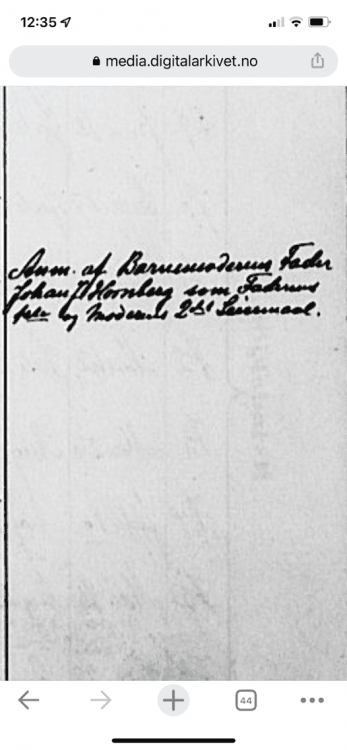 12:35
media.digitalarkivet.no
Anm. af Barnemoderens Fader
Johan P. Hornberg som Faderens
1ste og Moderens 2det Leiermaal.
44